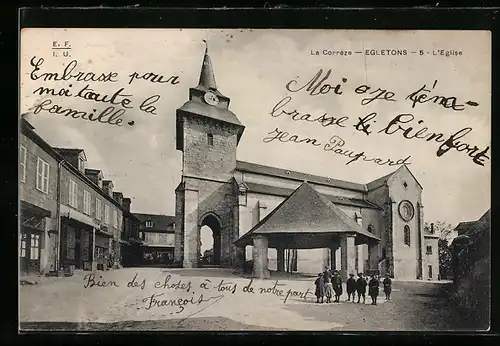 E. F.
I. U.
La Corrèze — EGLETONS — 5 - L'Eglise
Embrasse pour
moi toute la
famille.
Moi aze téna-
brasse bien fort
Jean Paupard
Bien des choses à tous de notre part
François